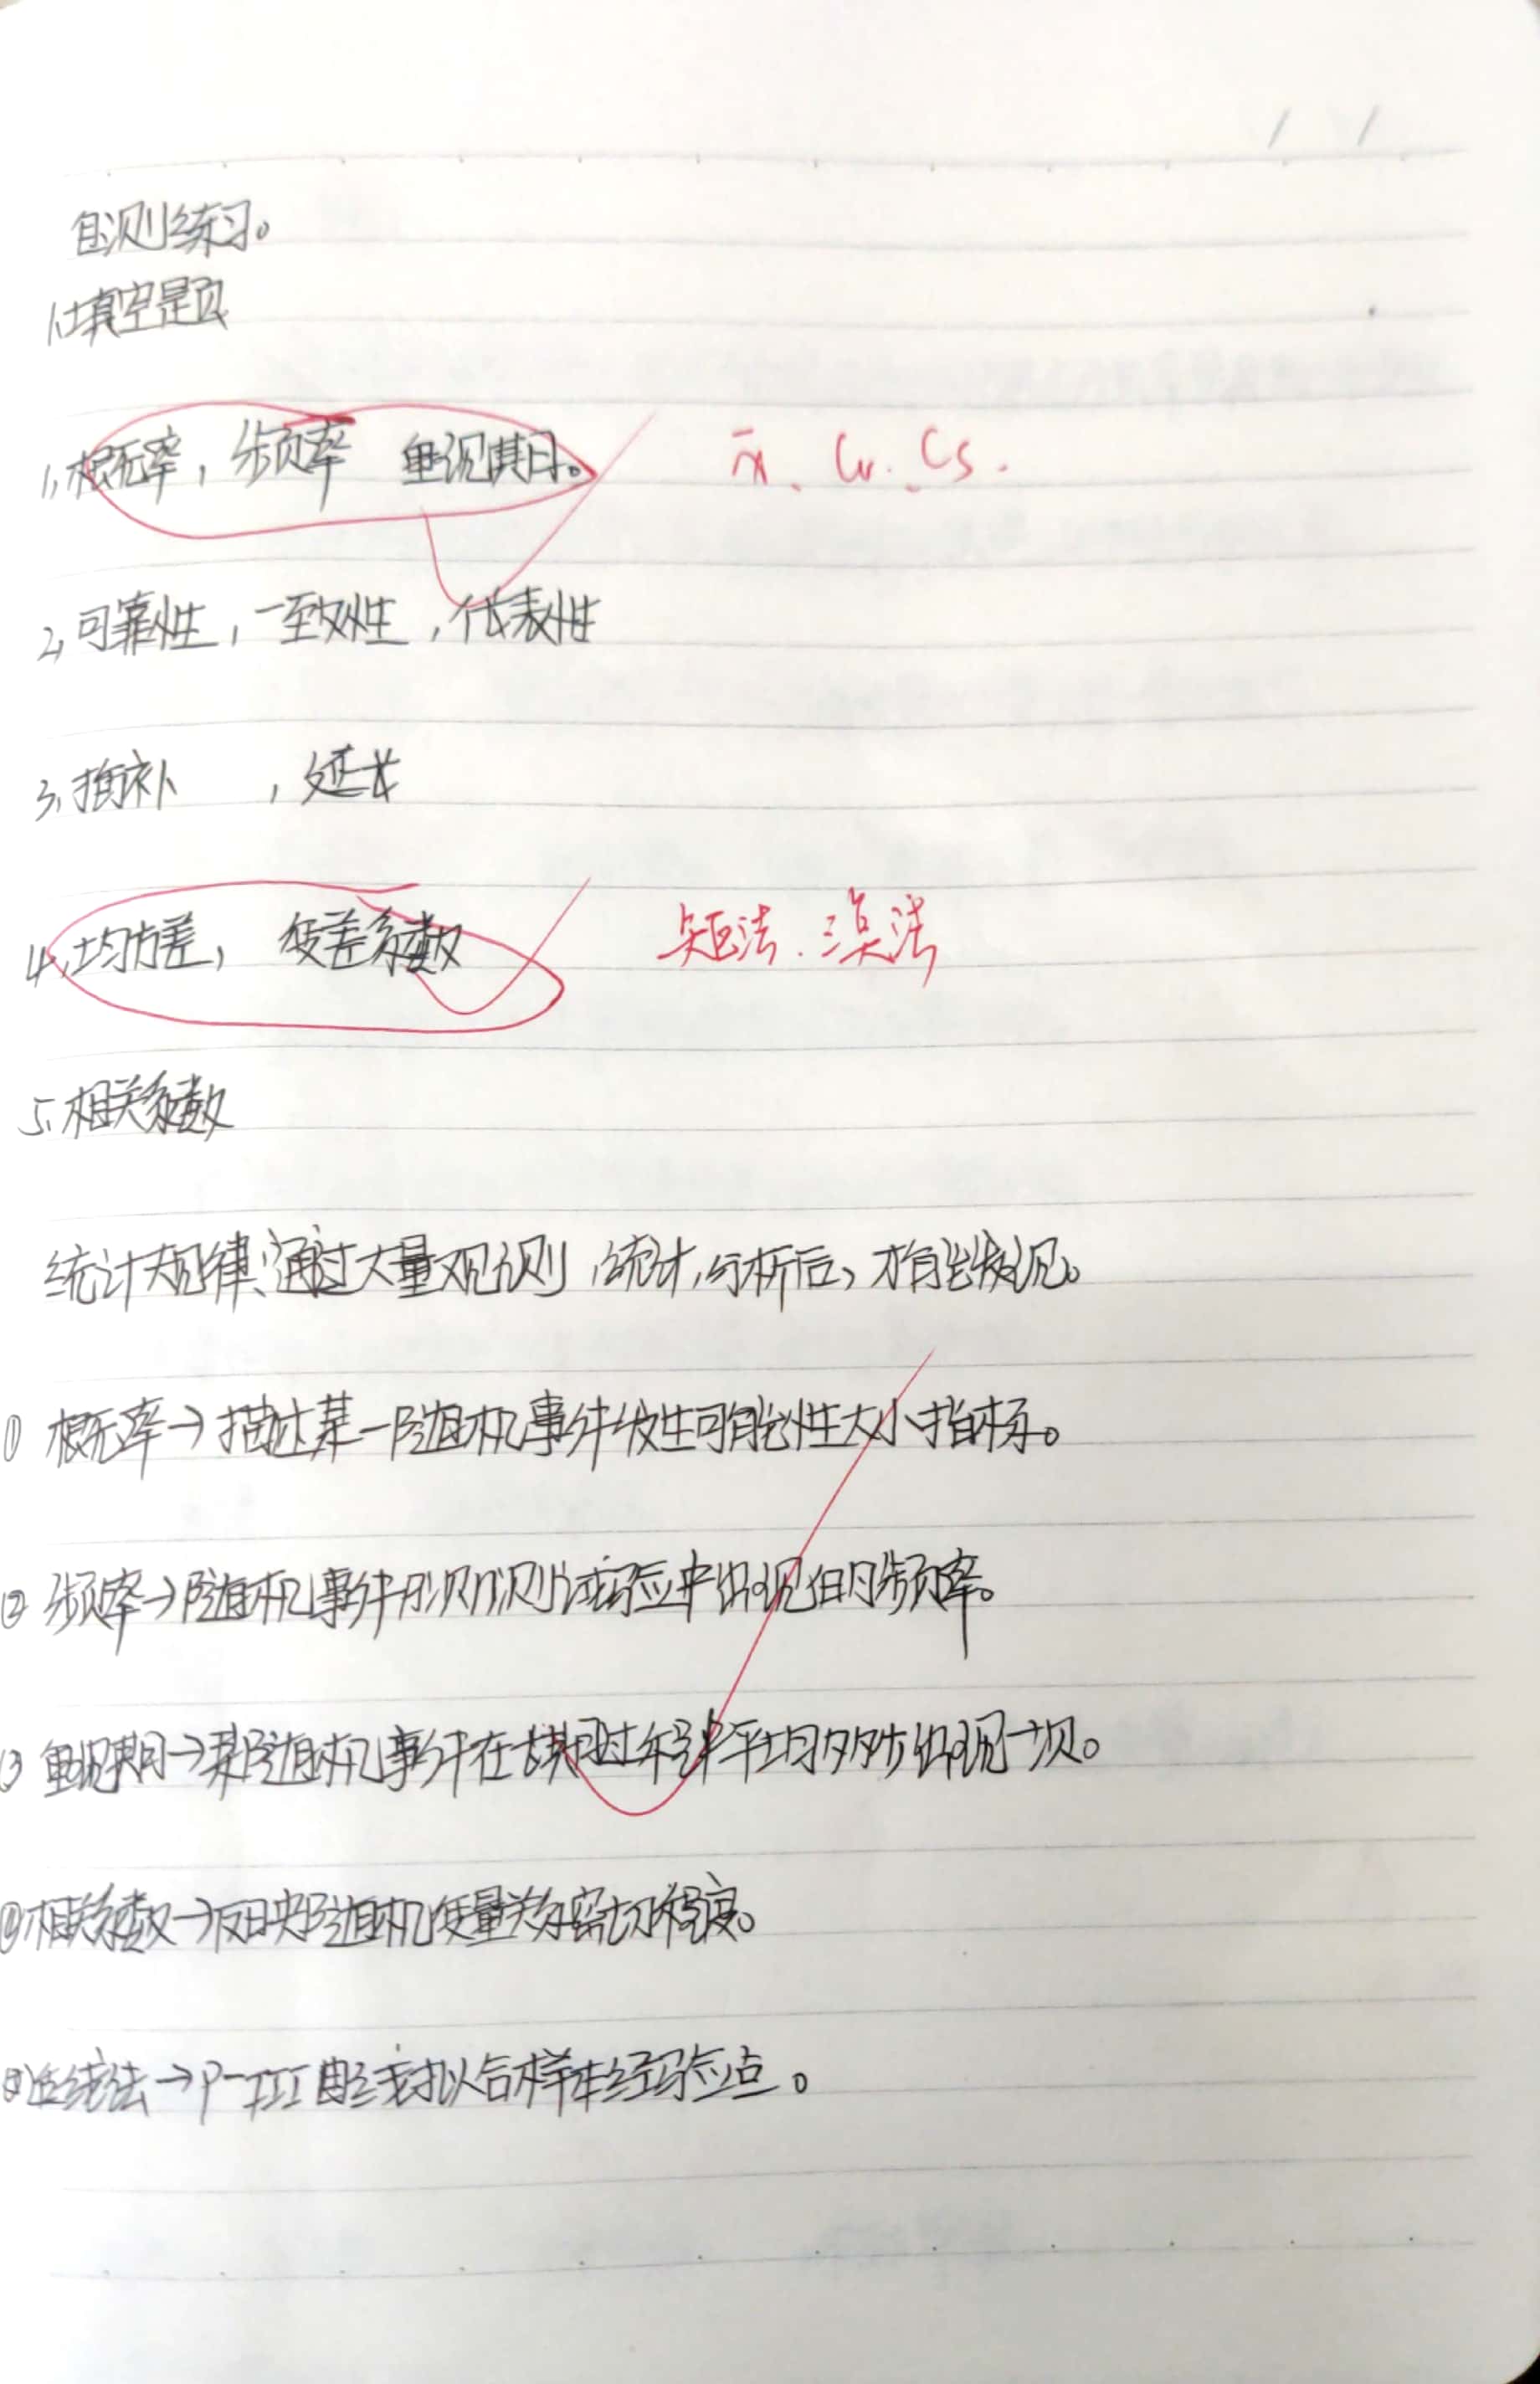 自测练习。
1.填空题
1. 概率, 频率 重现期。 x̄、Cv、Cs.
2. 可靠性, 一致性, 代表性
3. 插补 , 延长
4. 均方差, 变差系数 矩法. 三点法
5. 相关系数
统计规律:通过大量观测,统计,分析后,才能发现。
① 概率→描述某一随机事件发生可能性大小指标。
② 频率→随机事件 测试实验中出现的频率。
③ 重现期→某随机事件在长期过程中平均多少出现一次。
④相关系数→反映随机变量关系密切程度。
⑤适线法→P-III曲线拟合样本经验点。